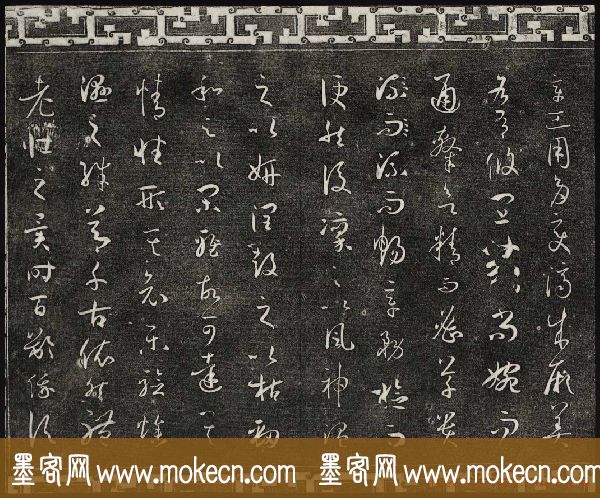 章工用多變濟成厥美
各有攸宜篆尚婉而
通隸欲精而密草貴
流而流而暢章務檢而
便然後凜之以風神溫
之以妍潤鼓之以枯勁
和之以閑雅故可達其
情性形其哀樂驗燥
濕之殊節千古依然體
老壯之異時百齡俄頃
墨客网 www.mokecn.com 墨客网 www.mokecn.com